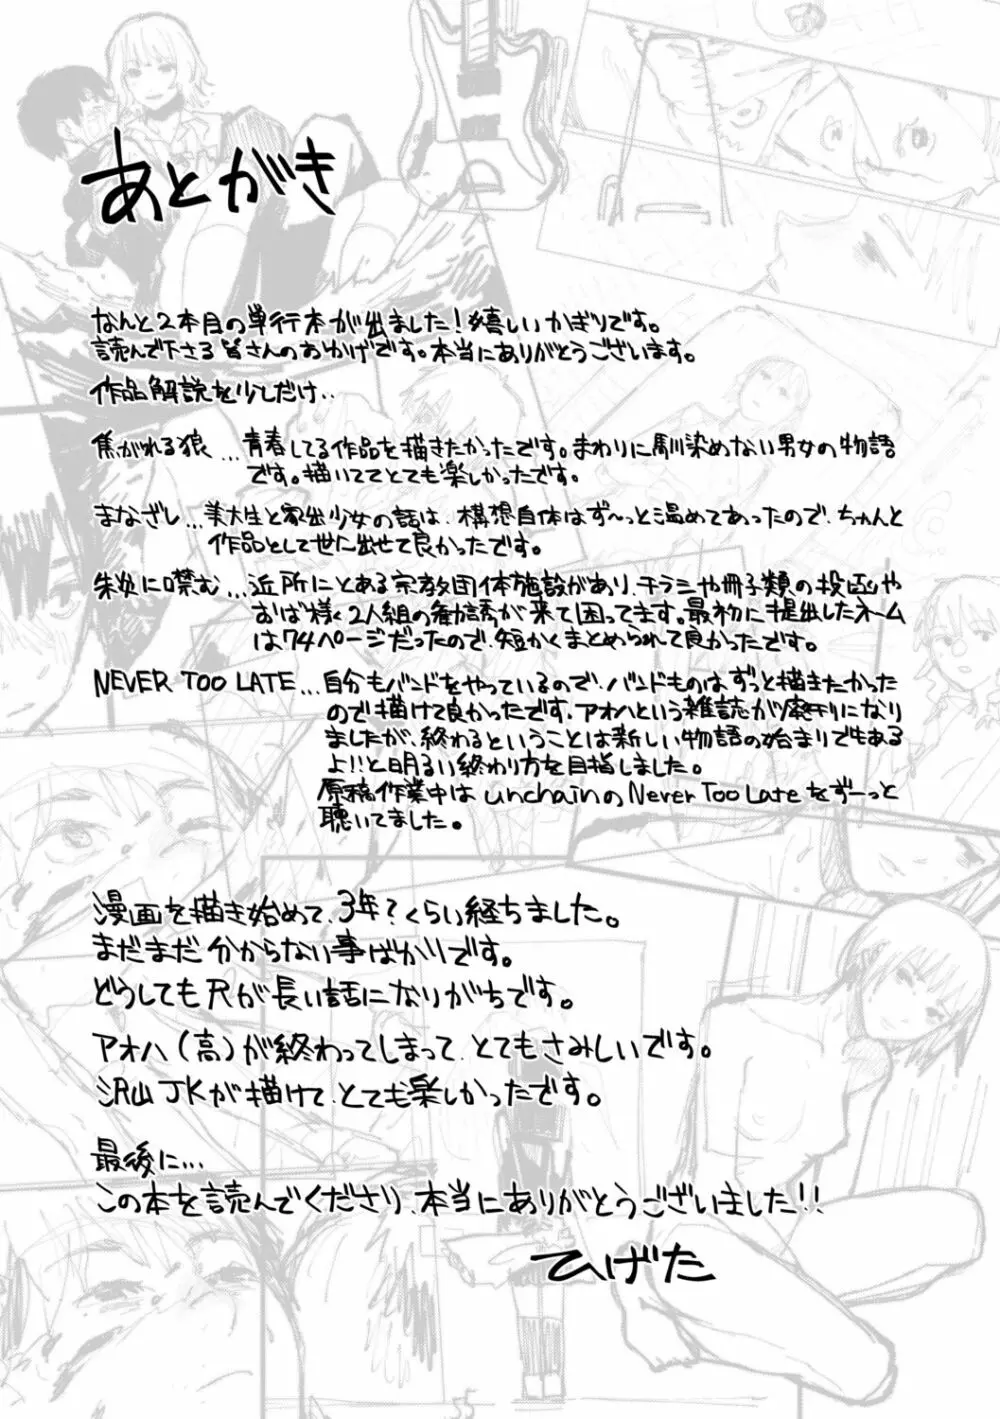 あとがき
なんと2本目の単行本が出ました！嬉しいかぎりです。
読んで下さる皆さんのおかげです。本当にありがとうございます。
作品解説を少しだけ‥
焦がれる狼…青春してる作品を描きたかったです。まわりに馴染めない男女の物語
です。描いててとても楽しかったです。
まなざし…美大生と家出少女の話は、構想自体はず〜っと温めてあったので、ちゃんと
作品として世に出せて良かったです。
朱炎に噤む…近所にとある宗教団体施設があり、チラシや冊子類の投函や
おば様2人組の勧誘が来て困ってます。最初に提出したネーム
は74ページだったので、短かくまとめられて良かったです。
NEVER TOO LATE…自分もバンドをやっているので、バンドものはずっと描きたかった
ので描けて良かったです。アオハという雑誌が廃刊になり
ましたが、終わるということは新しい物語の始まりでもある
よ!!と明るい終わり方を目指しました。
原稿作業中はunchainのNever Too Lateをずーっと
聴いてました。
漫画を描き始めて、3年？くらい経ちました。
まだまだ分からない事ばかりです。
どうしても尺が長い話になりがちです。
アオハ(高)が終わってしまって、とてもさみしいです。
沢山JKが描けて、とても楽しかったです。
最後に…
この本を読んでくださり、本当にありがとうございました!!
ひげた